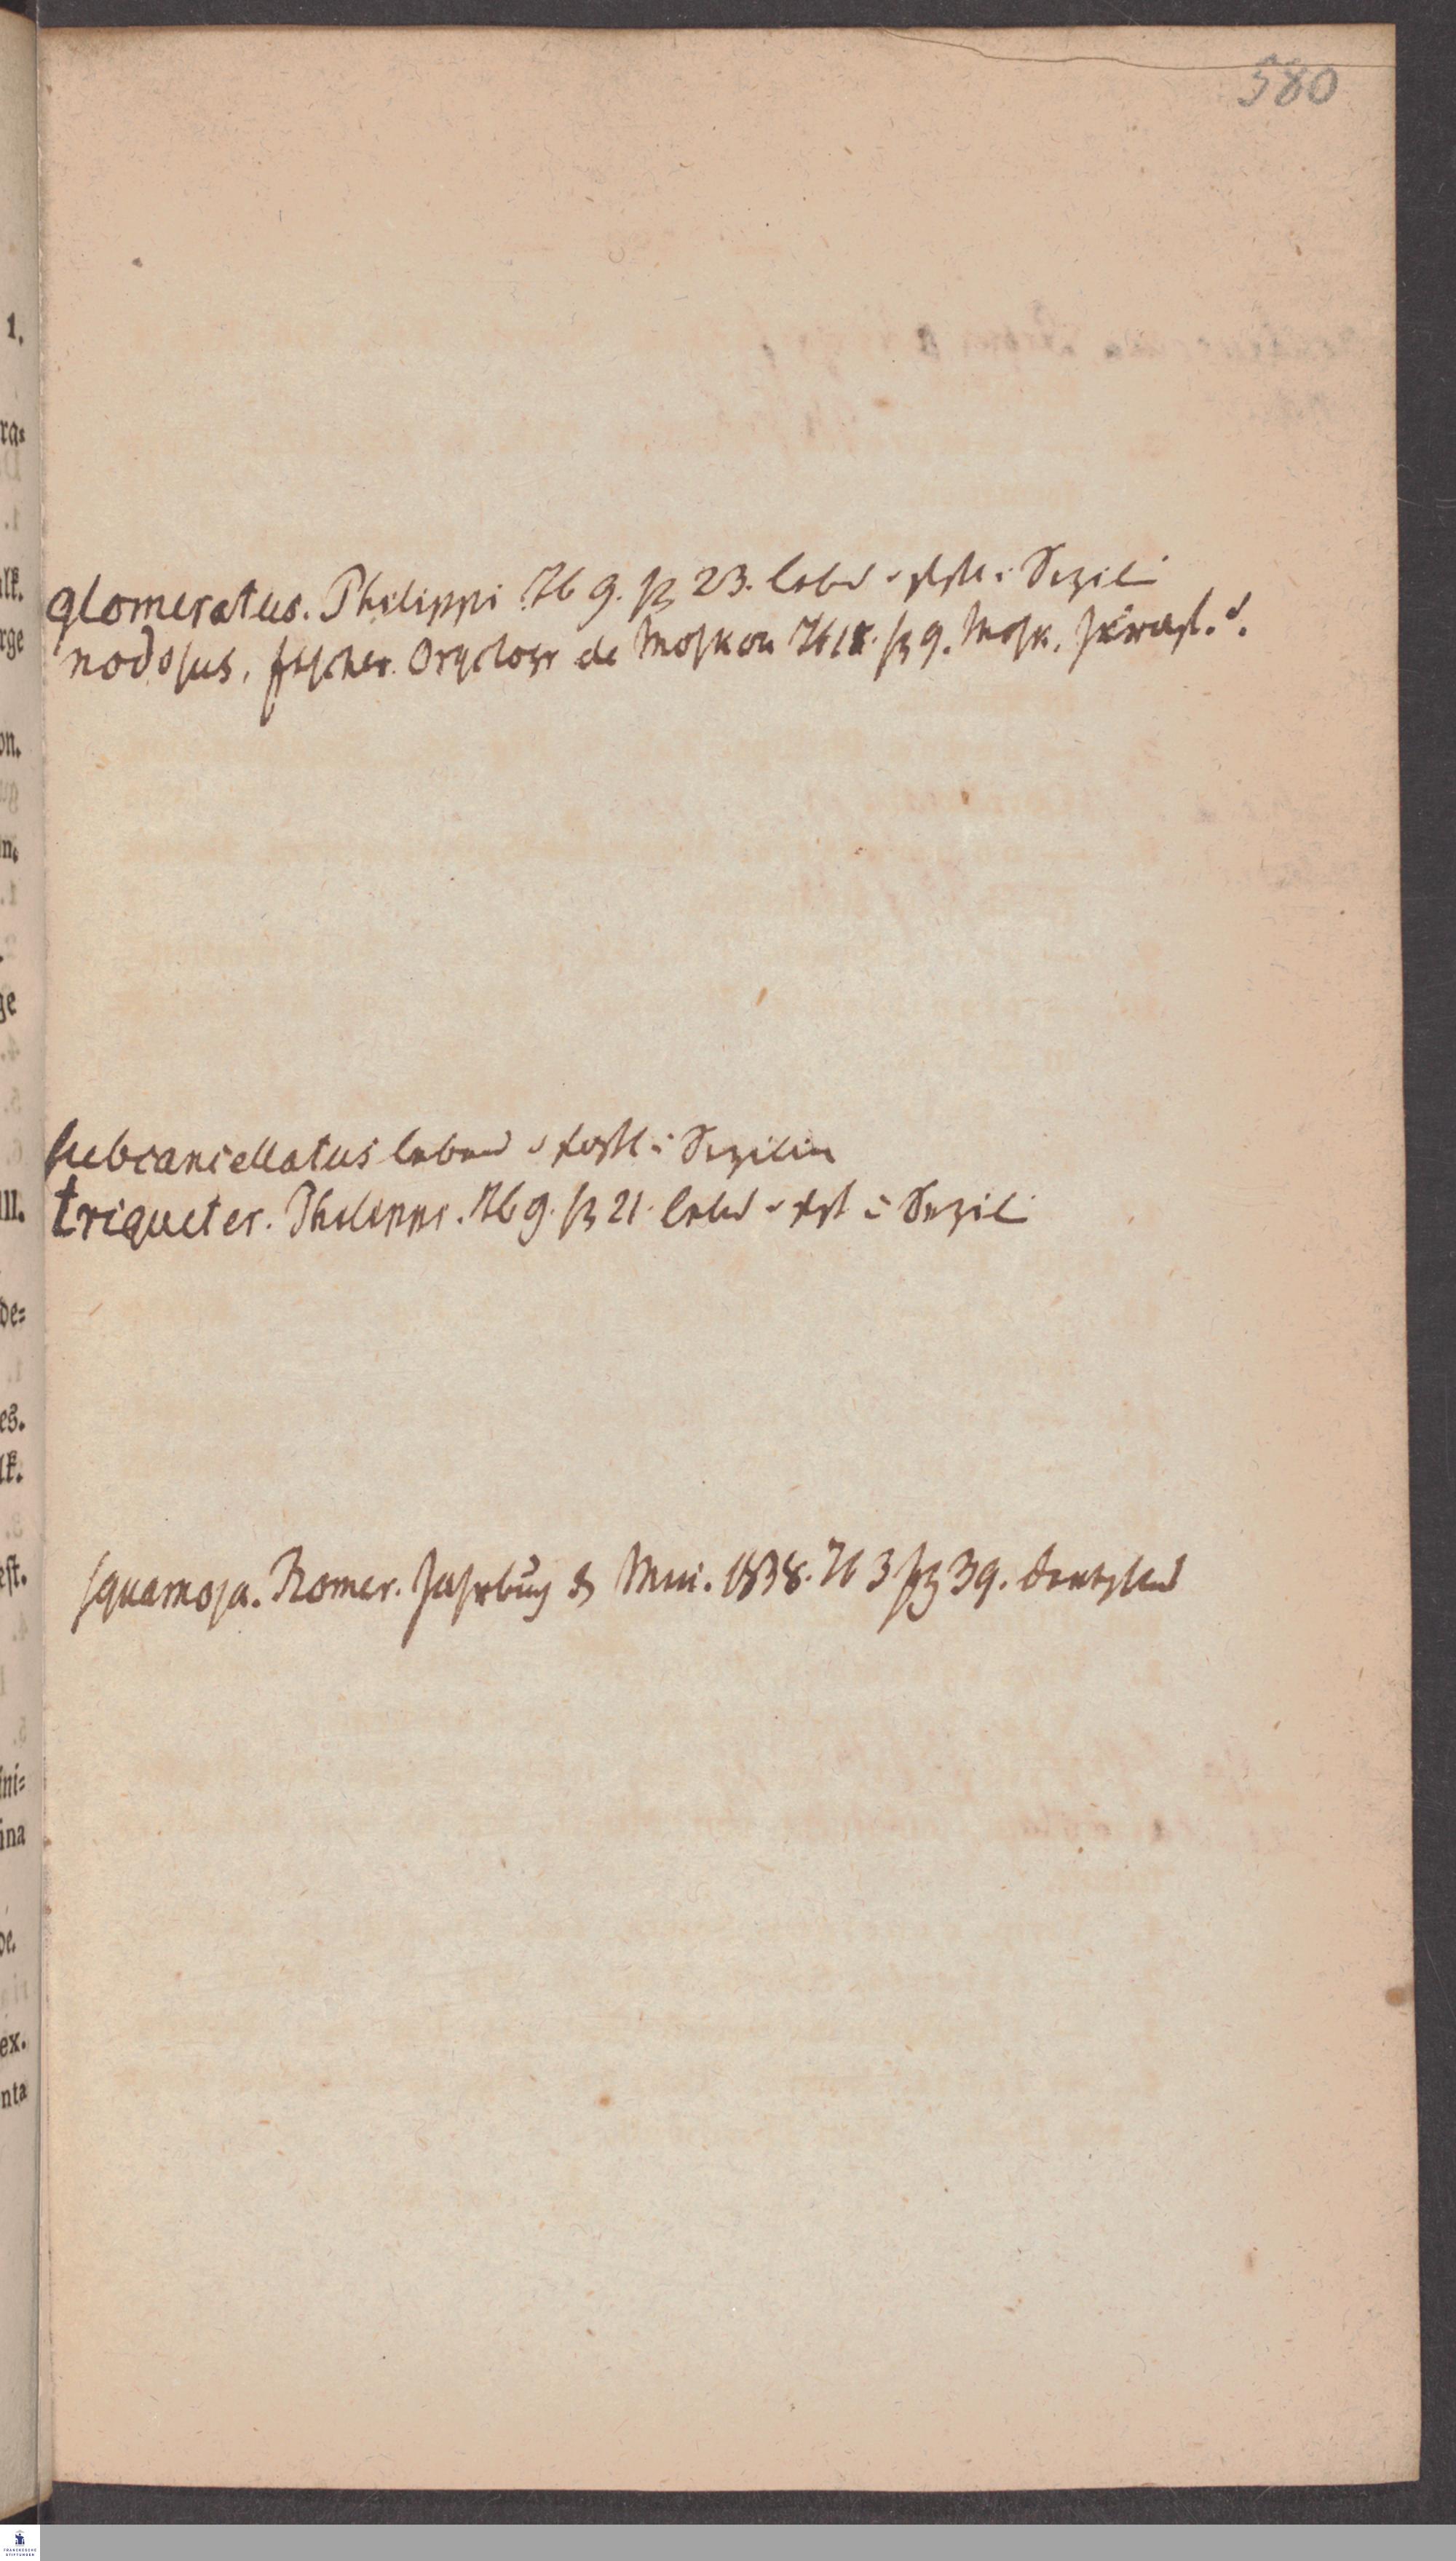 580
glomeratus. Philippi Tb 9. fig 23. lebd u fossl i Sizili
nodosus. fischer. Oryctogr de Moskou Tb 18. fig 9. Mosk.
subcancellatus lebend u fossl i Sizilien
triqueter. Philippi. Tb 9. fig 21. lebd u fossl i Sizili
squamosa. Romer. Jahrbuch d Min. 1838. Tb 3 fig 39. deutschland